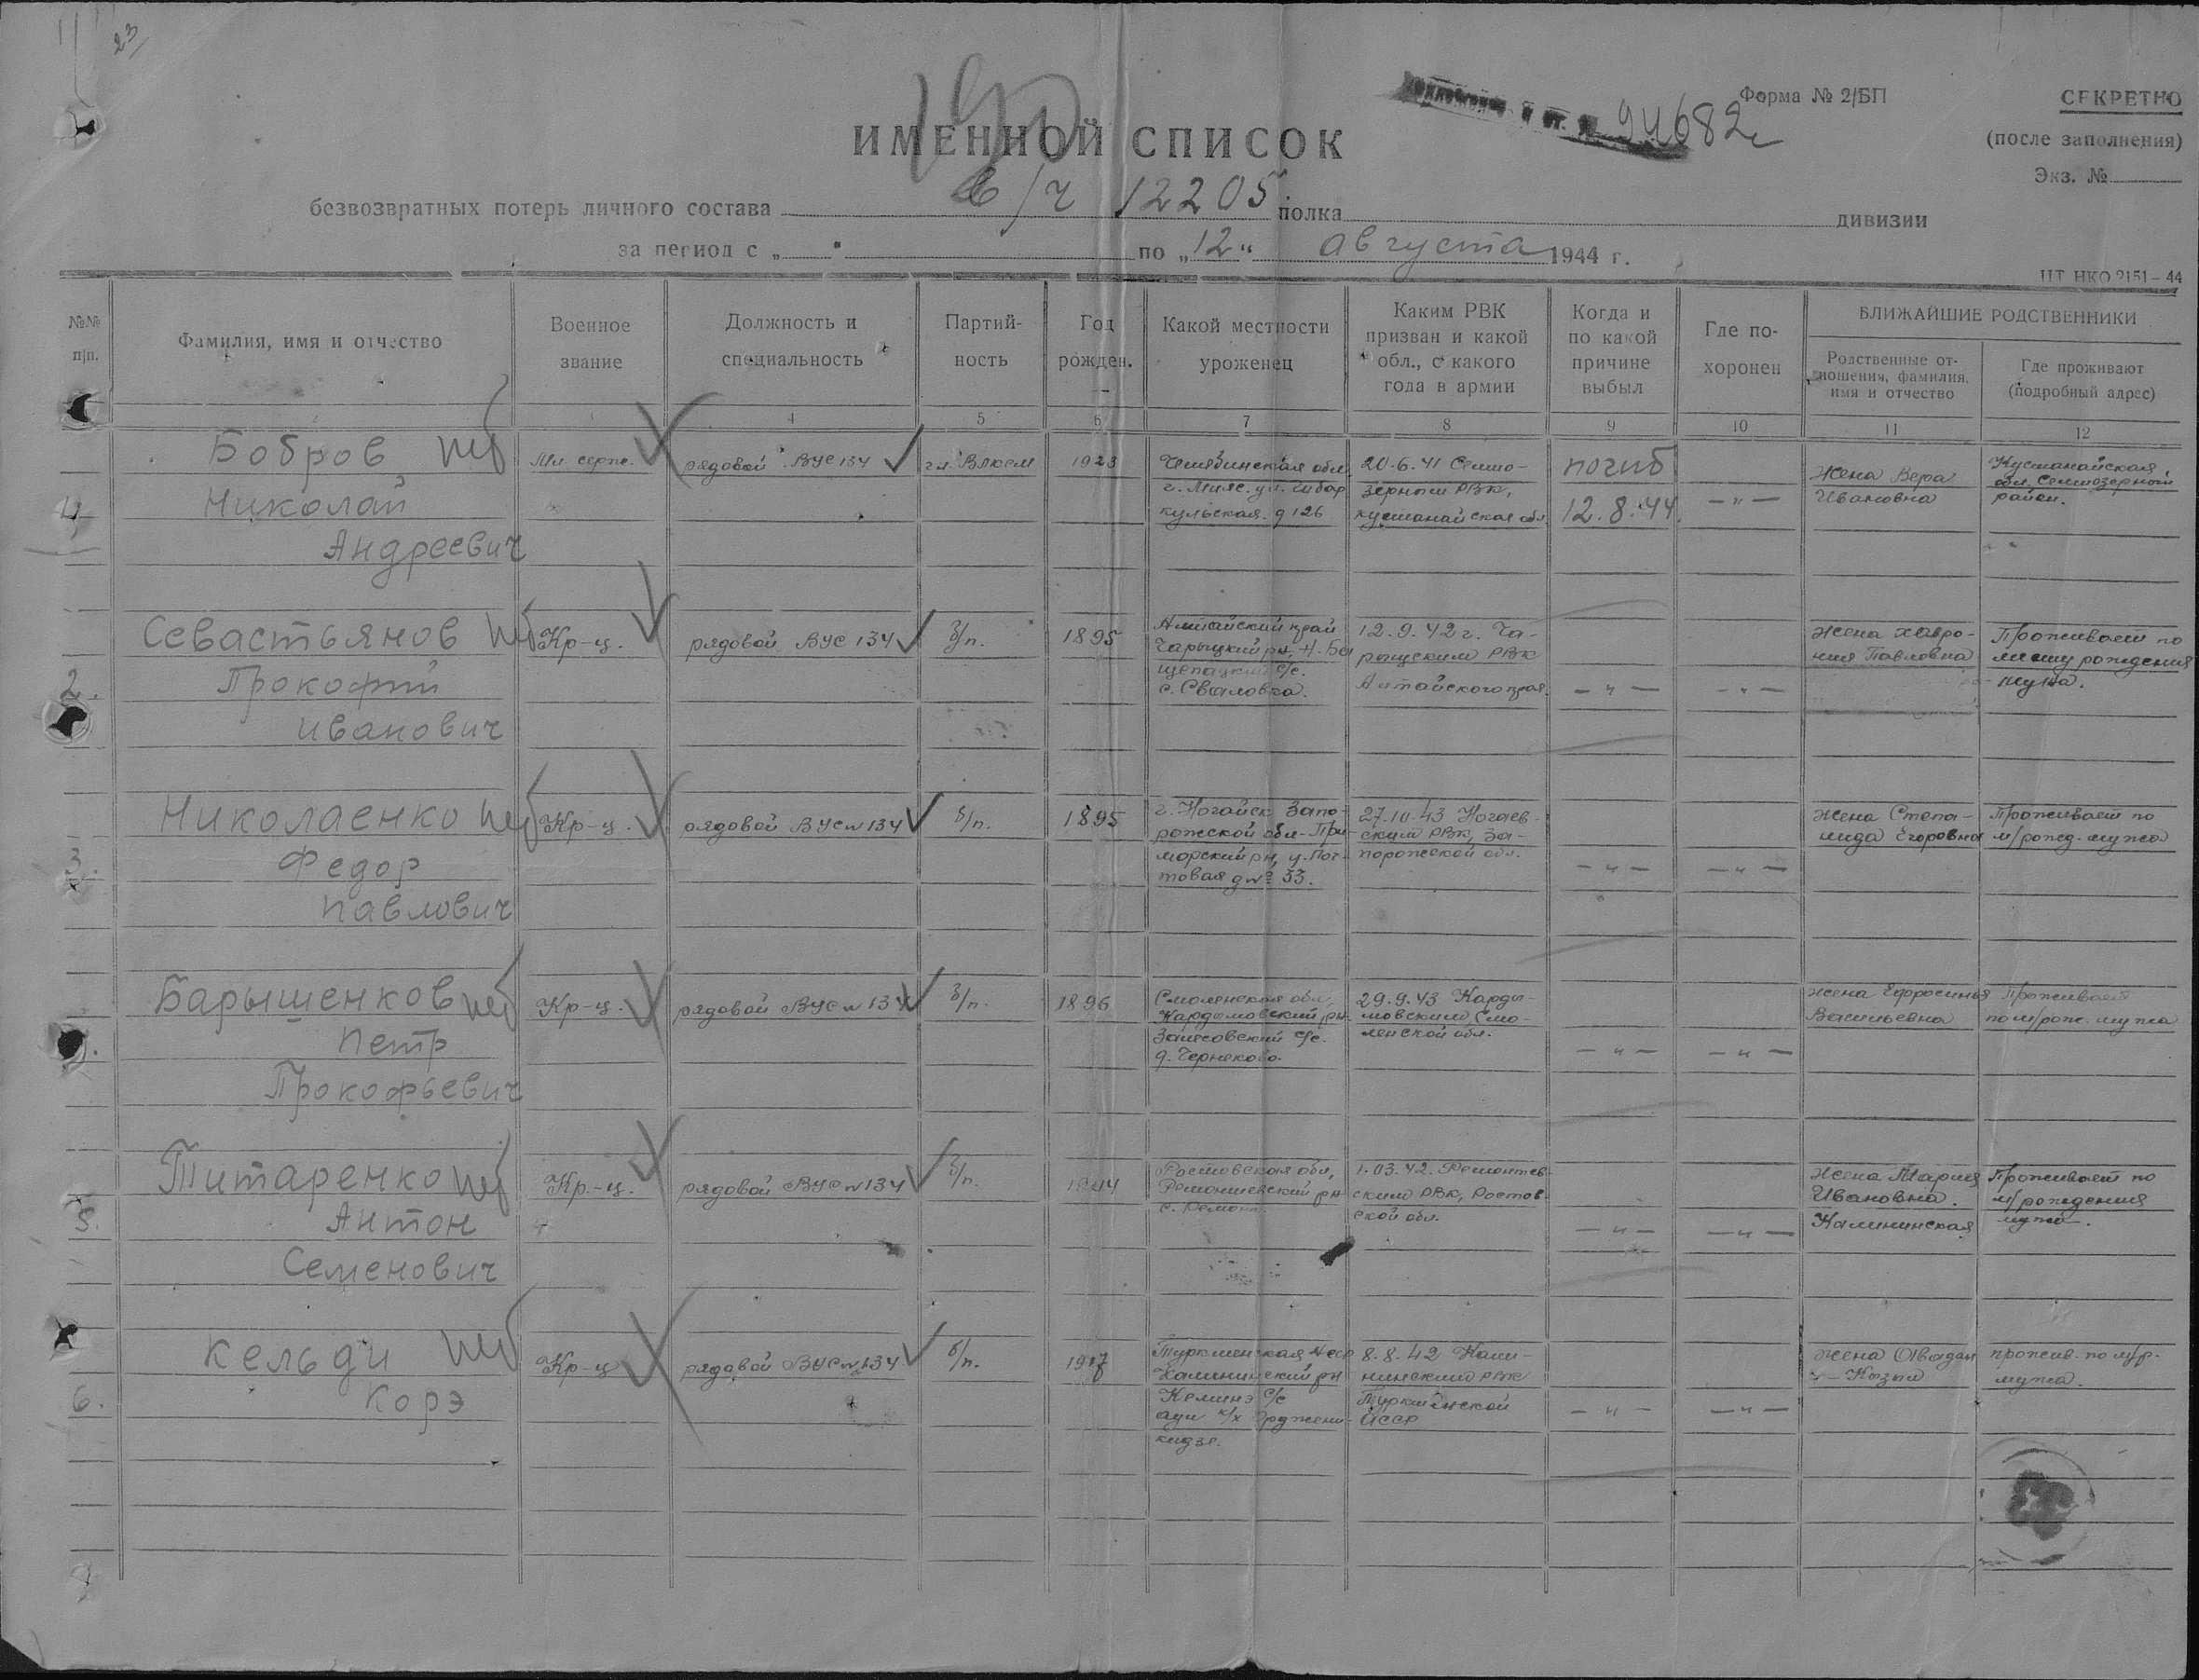 23
Форма № 2/БП
СЕКРЕТНО
94682с
(после заполнения)
ИМЕННОЙ СПИСОК
Экз. №
безвозвратных потерь личного состава в/ч 12205 полка дивизии
за период с „ “ по „12“ августа 1944 г.
ЦТ НКО 2151–44
№№ п/п.
Фамилия, имя и отчество
Военное звание
Должность и специальность
Партийность
Год рожден.
Какой местности уроженец
Каким РВК призван и какой обл., с какого года в армии
Когда и по какой причине выбыл
Где похоронен
БЛИЖАЙШИЕ РОДСТВЕННИКИ
Родственные отношения, фамилия, имя и отчество
Где проживают (подробный адрес)
4 5 6 7 8 9 10 11 12
Бобров
Николай
Андреевич
Мл. серж.
рядовой ВУС 134
чл. ВЛКСМ
1923
Челябинская обл.
г. Мияс. ул. Чибар
кульская. д 126
20.6.41 Семио-
зерным РВК,
кустанайская обл.
погиб
12.8.44
— " —
Жена Вера
Ивановна
Кустанайская
обл. Семиозерный
район.
2.
Севастьянов
Прокофий
Иванович
Кр-ц.
рядовой ВУС 134
б/п.
1895
Алтайский край
с/с.
12.9.42 г. Ча-
рышским РВК
Алтайского края.
— " —
— " —
Жена Хавро-
ния Павловна
Проживает по
месту рождения
мужа.
3.
Николаенко
Федор
Павлович
Кр-ц.
рядовой ВУС № 134
б/п.
1895
г. Ногайск Запо-
рожской обл. При-
морский рн, у. Поч-
товая д № 33.
27.10.43 Ногаев-
ским РВК, За-
порожской обл.
— " —
— " —
Жена Степа-
нида Егоровна
Проживает по
м/рожд. мужа
Барышенков
Петр
Прокофьевич
Кр-ц.
рядовой ВУС № 134
б/п.
1896
Смоленская обл,
Кардымовский рн.
с/с.
29.9.43 Карды-
мовским Смо-
ленской обл.
— " —
— " —
Жена Ефросинья
Васильевна
Проживает
по м/рож. мужа
5.
Титаренко
Антон
Семенович
Кр-ц.
рядовой ВУС № 134
б/п.
Ростовская обл,
Ремонтневский рн
с. Ремонт.
1.03.42. Ремонтнев-
ским РВК, Ростов
ской обл.
— " —
— " —
Жена Мария
Ивановна.
Калининская
Проживает по
м/рождения
мужа.
6.
Кельди
Корэ
Кр-ц
рядовой ВУС № 134
б/п.
Туркменская
Калининский рн
с/с
аул к/х Орджони-
кидзе.
8.8.42 Кали-
нинским РВК
Туркменской
ССР
— " —
— " —
Жена
прожив. по м/р.
мужа.